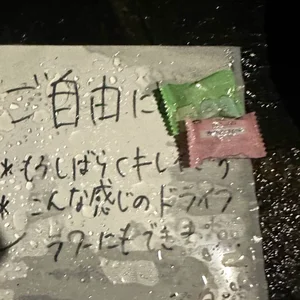 ご自由に
*もうしばらくキレ
*こんな感じのドライフ
ラワーにもできます。